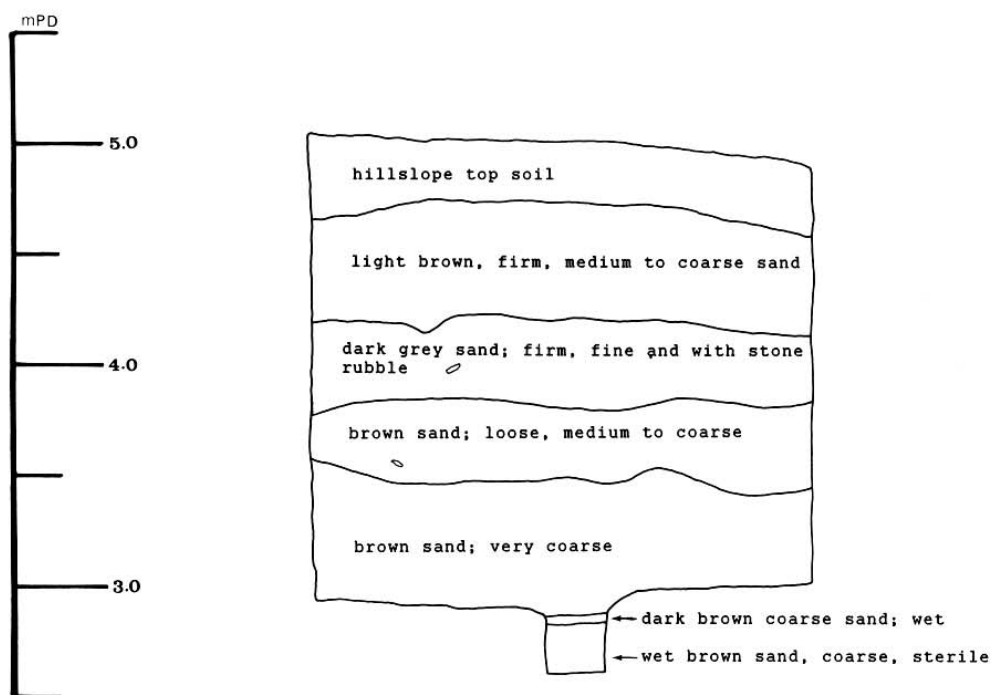 mPD
5.0
hillslope top soil
light brown, firm, medium to coarse sand
dark grey sand; firm, fine and with stone
rubble
4.0
brown sand; loose, medium to coarse
brown sand; very coarse
3.0
dark brown coarse sand; wet
wet brown sand, coarse, sterile